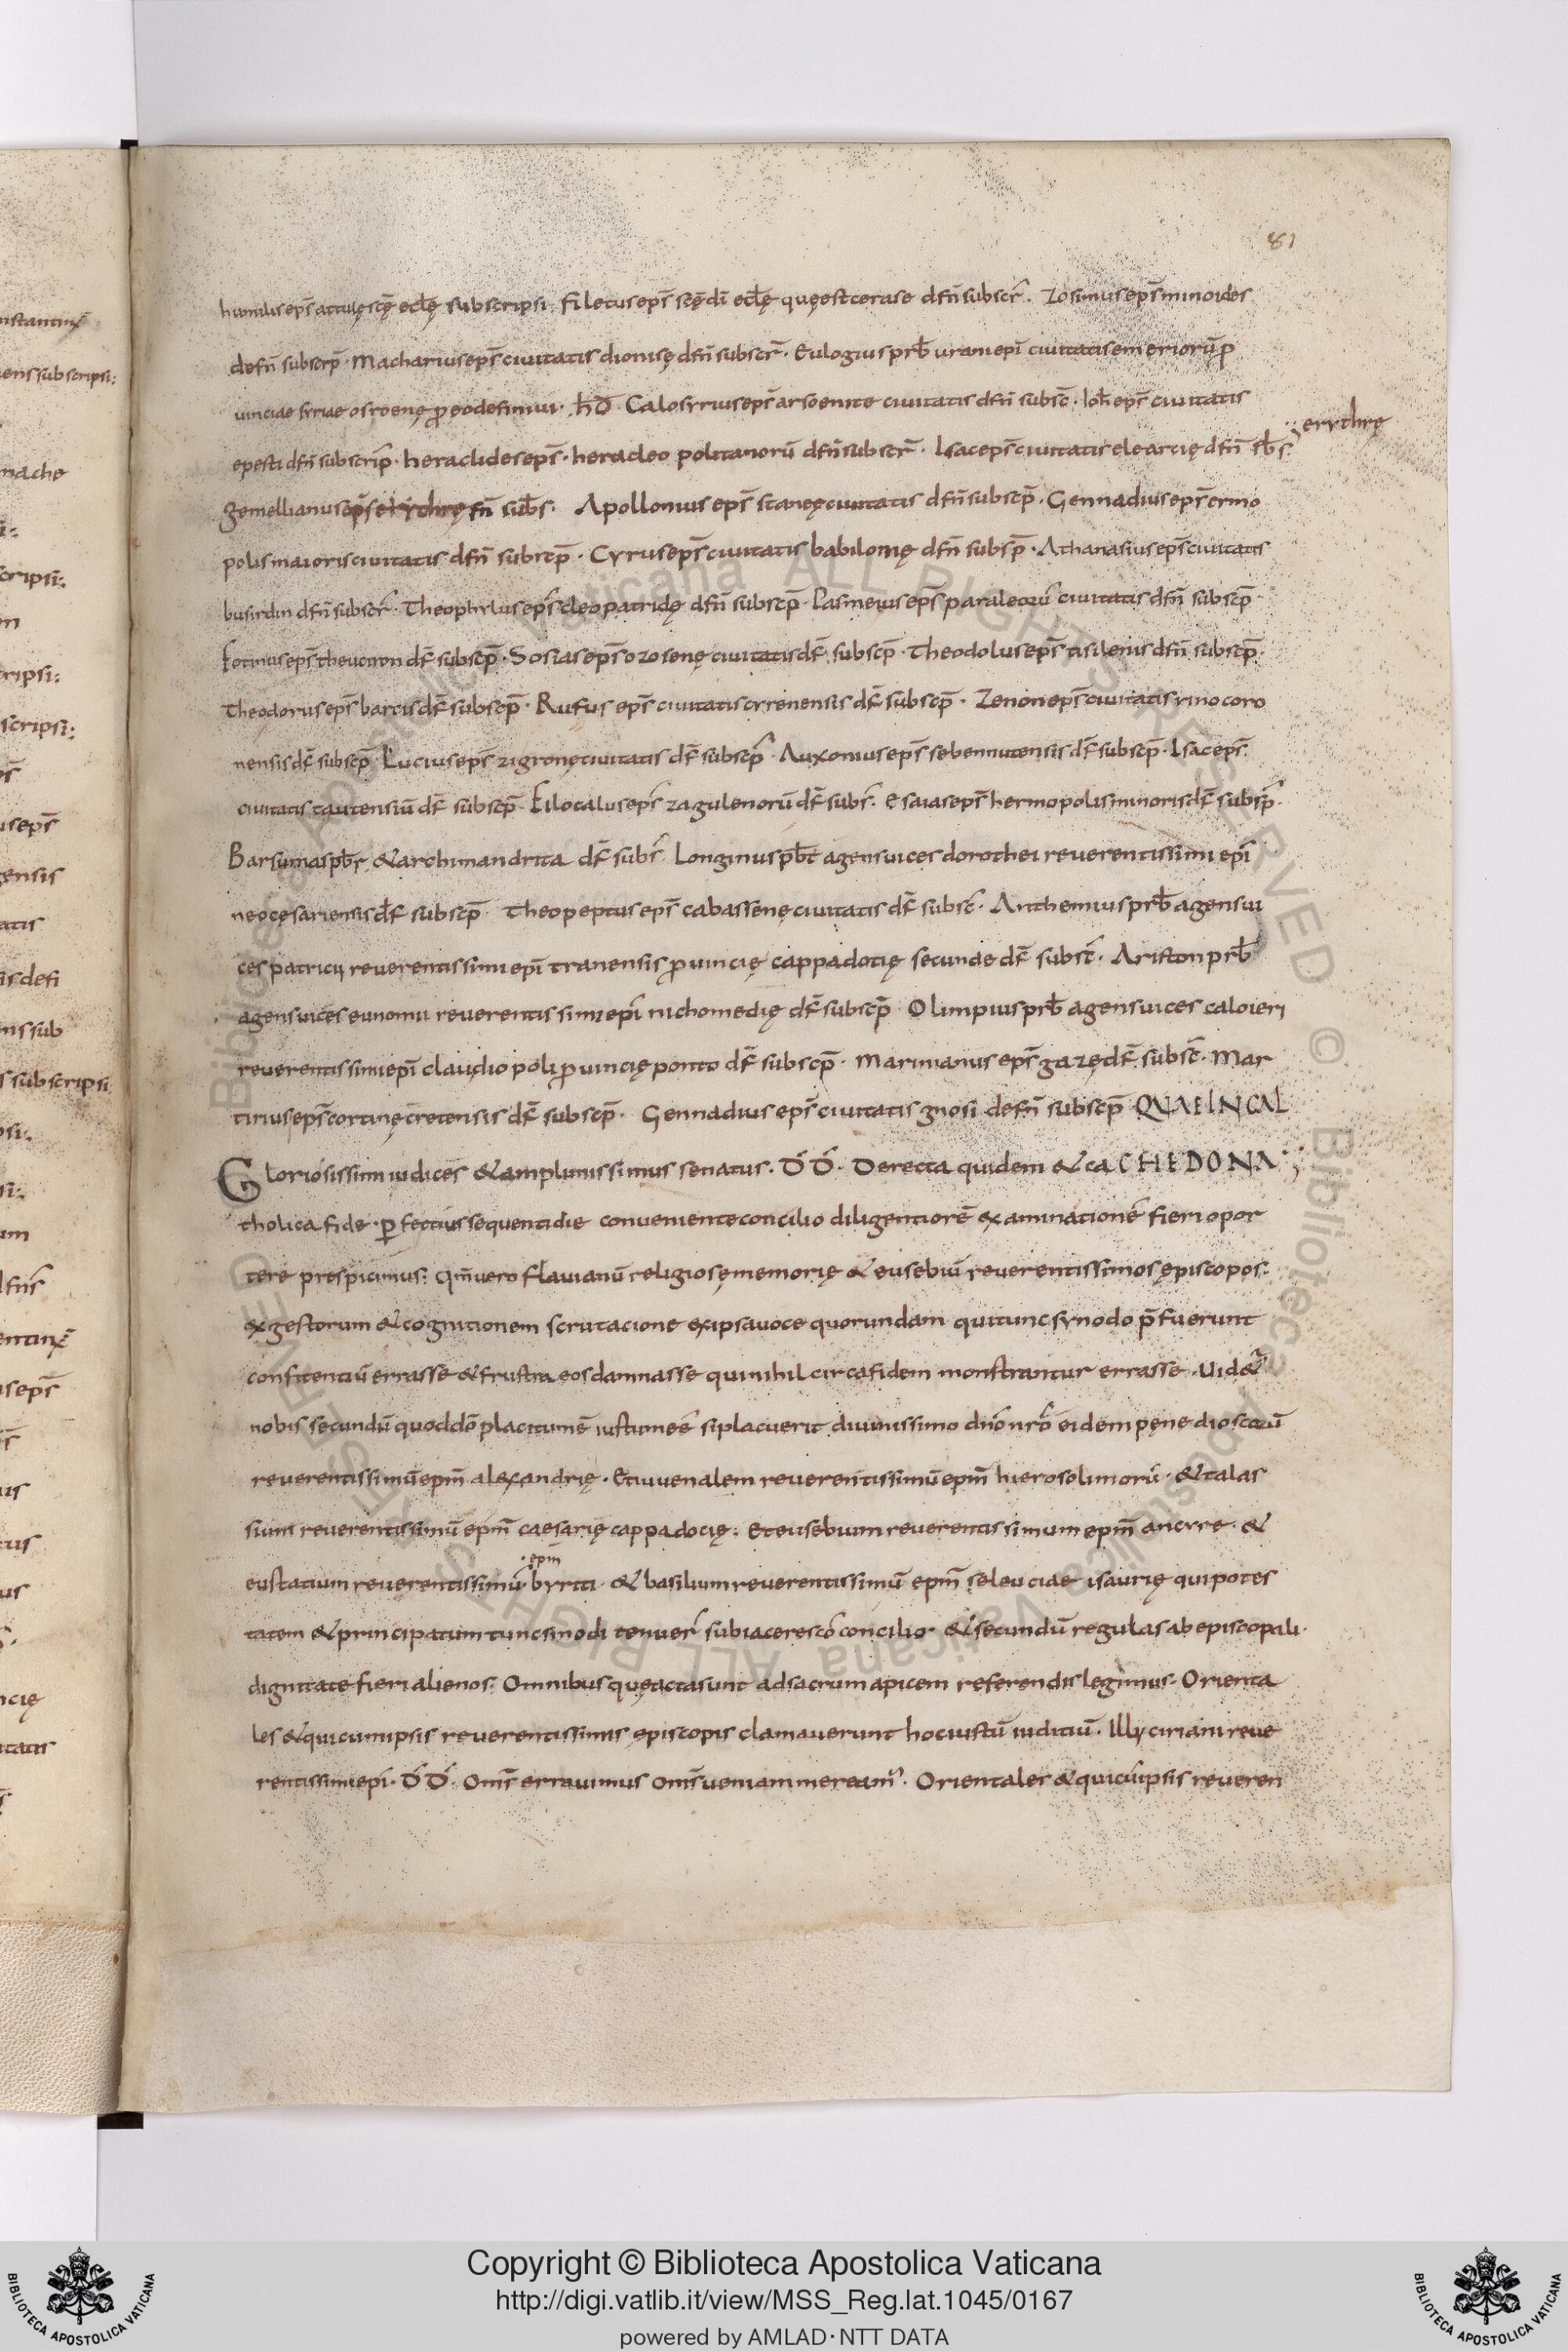 81
humilis eps̄ attulę scę̄ eclę̄ subscripsi. filetus eps̄ scę̄ dī eclę̄ quę est cerase dfn̄ subscr̄. Zosimus eps̄ minoides
defn̄ subscrp̄. Macharius eps̄ ciuitatis dionisę dfn̄ subscr̄. Eulogius prb̄ urani epī ciuitatis emeriorū ꝓ
uinciae syriae osroenę ꝓ eo definiui. h̄d̄. Calosyrius eps̄ arsoenite ciuitatis dfn̄ subsc̄. Ioh̄ eps̄ ciuitatis
epesti dfn̄ subscrip̄. heraclides eps̄. heracleo politanorū dfn̄ subscr̄. Isac eps̄ ciuitatis elearcię dfn̄ sb̄s.
erythrę
gemellianus eps̄ erythrę fn̄ sub̄s. Apollonius eps̄ staneę ciuitatis dfn̄ subscp̄. Gennadius eps̄ ermo
polis maioris ciuitatis dfn̄ subscp̄. Cyrus eps̄ ciuitatis babilonię dfn̄ subsp̄. Athanasius eps̄ ciuitatis
busirdin dfn̄ subscr̄. Theophylus eps̄ cleopatridę dfn̄ subscp̄. Pasmeius eps̄ paraleorū ciuitatis dfn̄ subscp̄
Fotinus eps̄ theuciron df̄ subscp̄. Sosias eps̄ ozosenę ciuitatis df̄ subscp̄. Theodolus eps̄ tisilenis dfn̄ subscp̄.
Theodorus eps̄ barcis df̄ subscp̄. Rufus eps̄ ciuitatis cyrenensis df̄ subscp̄. Zenon eps̄ ciuitatis rino coro
nensis df̄ subscp̄. Lucius eps̄ zigronę ciuitatis df̄ subscp̄. Auxonius eps̄ sebennutensis df̄ subscp̄. Isac eps̄
ciuitatis tautensiū df̄ subscp̄. Filocalus eps̄ zagulenorū df̄ subs̄. Esaias eps̄ hermopolis minoris df̄ subsp̄.
Barsumas pb̄r & archimandrita df̄ subs̄. Longinus pb̄t agens uices dorothei reuerentissimi epī
neocęsariensis df̄ subscp̄. Theopeptus eps̄ cabassenę ciuitatis df̄ subsc̄. Anthemius prb̄ agens ui
ces patricii reuerentissimi epī tranensis ꝓuincię cappadotię secunde df̄ subsc̄. Ariston prb̄
agens uices eunomii reuerentissimi epī nichomedię df̄ subscp̄. Olimpius prb̄ agens uices caloieri
reuerentissimi epī claudiopoli ꝓuincię ponto df̄ subscp̄. Marinianus eps̄ gazę df̄ subsc̄. Mar
tirius eps̄ cortinę cretensis df̄ subscp̄. Gennadius eps̄ ciuitatis gnosi defn̄ subscp̄ QUAE IN CAL
Gloriosissimi iudices & amplinissimus senatus. D̄ D̄. De recta quidem & ca CHEDONA;
tholica fide. ꝑfectius sequenti die conueniente concilio diligentiorē examinationē fieri opor
tere prespicimus. Qm̄ uero flauianū religiosę memorię & eusebiū reuerentissimos ępiscopos.
ex gestorum & cognitionem scrutacione ex ipsa uoce quorundam qui tunc synodo p̄fuerunt
confitentiū errasse & frustra eos damnasse qui nihil circa fidem monstrantur errasse. Uid&ur
nobis secundū quod dō placitum ē iustum eē si placuerit diuinissimo dn̄o nr̄o eidem pene dioscorū
reuerentissimū epm̄ alexandrię. Et iuuenalem reuerentissimū epm̄ hierosolimorū. & talas
sium reuerentissimū epm̄ caesarię cappadocię. Et eusebium reuerentissimum epm̄ ancyre. &
eustatium reuerentissimū epm̄ byriti. & basilium reuerentissimū epm̄ seleuciae isaurię qui potes
tatem & principatum tunc sinodi tenuer̄ subiacere scō concilio. & secundū regulas ab episcopali
dignitate fieri alienos. Omnibus quę acta sunt ad sacrum apicem referendis legimus. Orienta
les & qui cum ipsis reuerentissimis episcopis clamauerunt hoc iustū iuditiū. Illyciriani reue
rentissimi epī. D̄ D̄. Oms̄ errauimus oms̄ ueniam mereamr̄. Orientales & qui cū ipsis reueren
Copyright © Biblioteca Apostolica Vaticana
http://digi.vatlib.it/view/MSS_Reg.lat.1045/0167
powered by AMLAD·NTT DATA